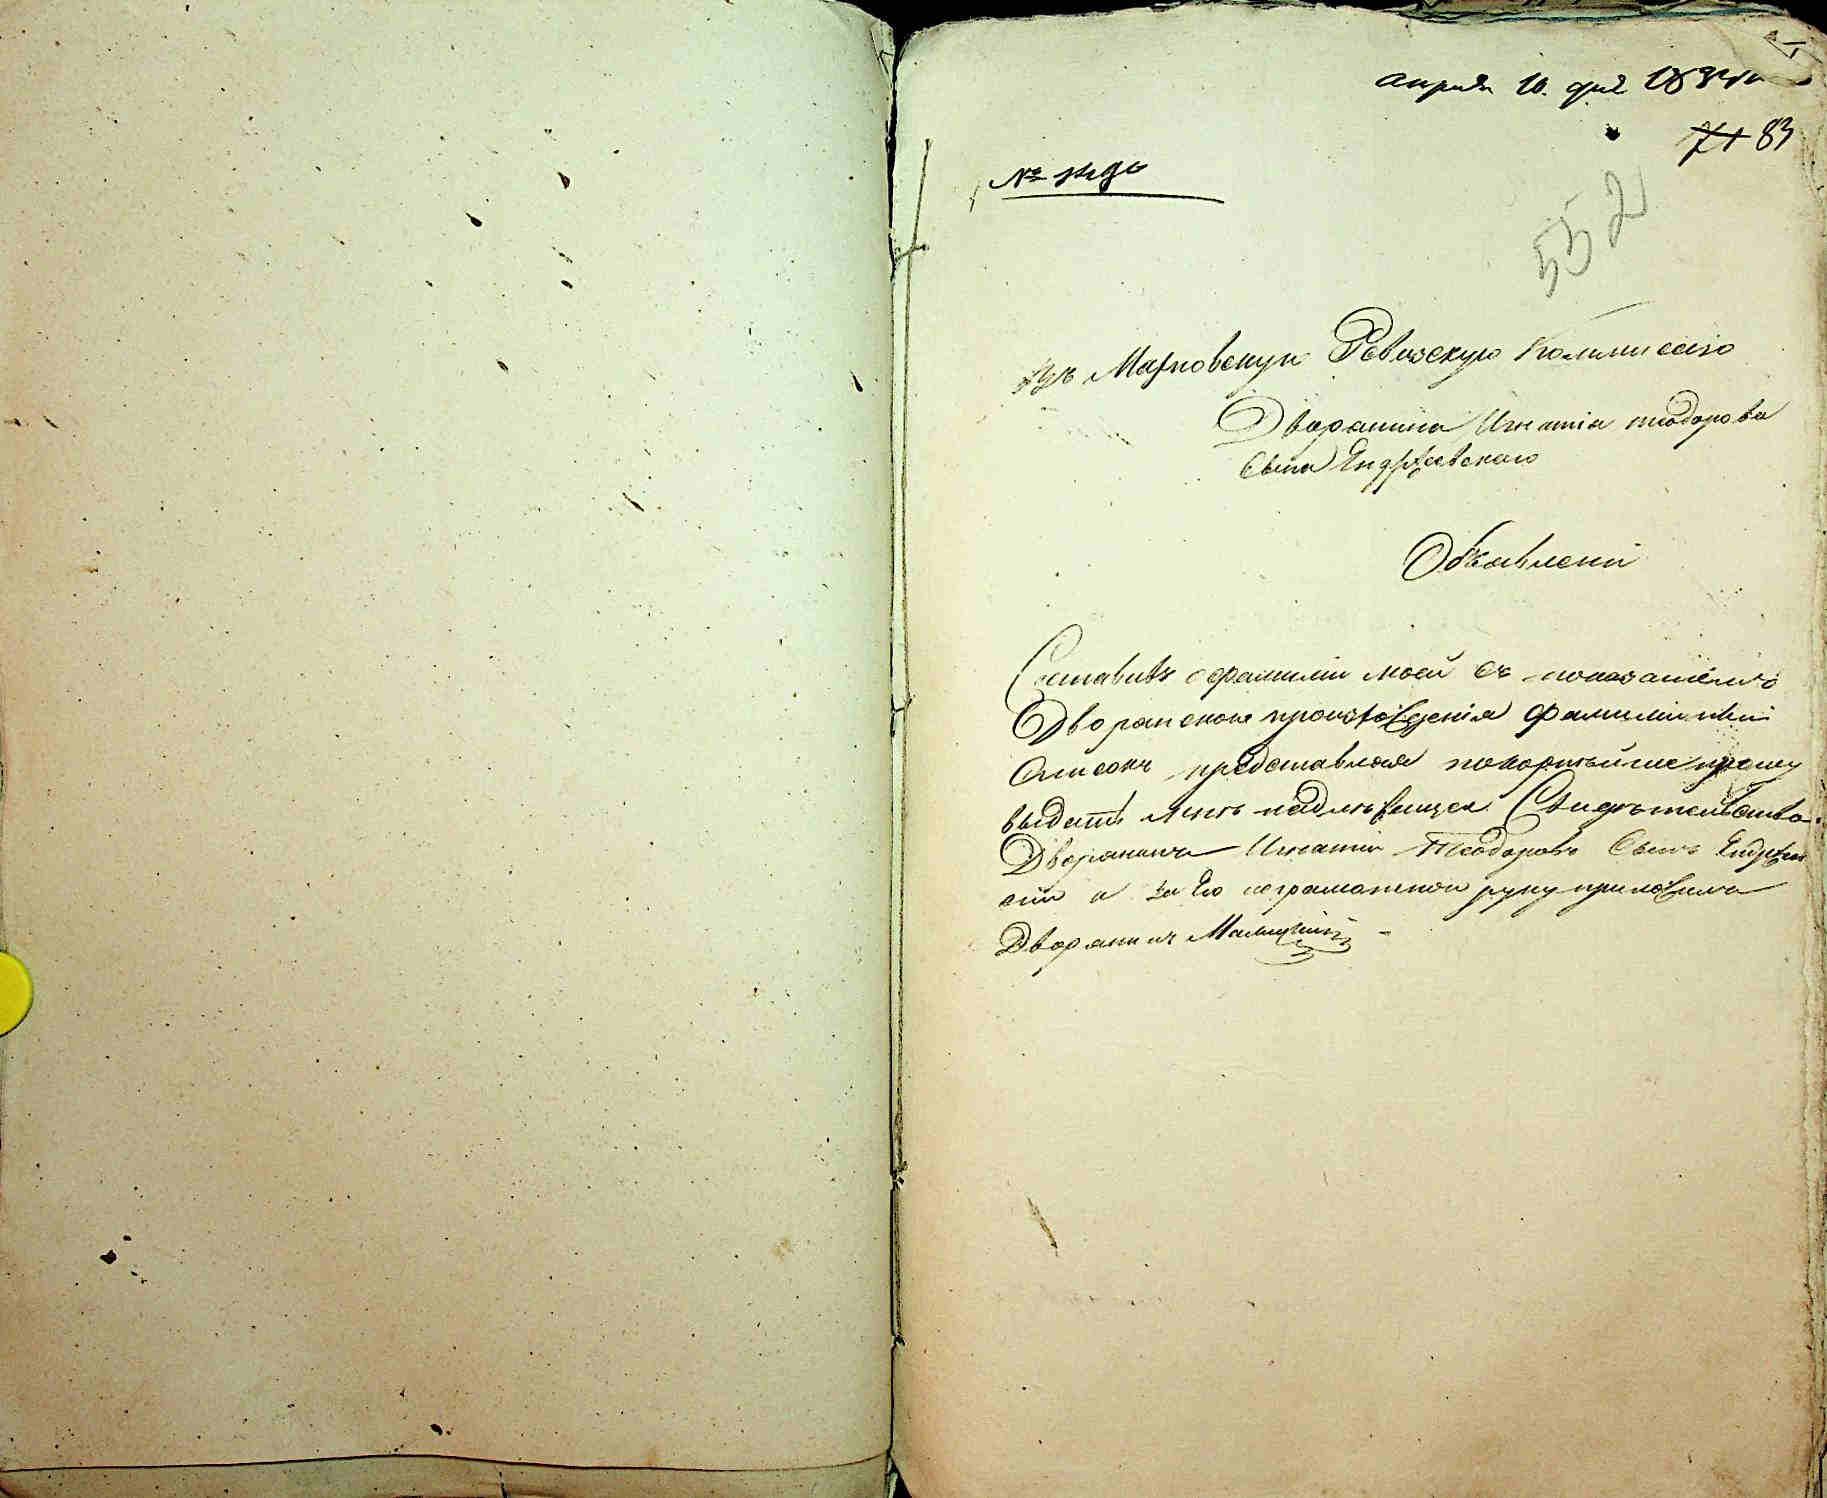 апреля 10. дня 183
71 83
№
552
Въ Марковскую Ревизскую Коммиссію
Дворянина Игнатія теодорова
сына Ендржеевскаго
Объявленіи
Составивъ о фамиліи моей съ показаніемъ
Дворянскои происхожденія фамилии
списокъ представляя покорнѣйше прошу
выдать мнѣ надлежащее Свидѣтельство.
Дворянинъ Игнатіи Теодоровъ Сынъ
а за Его неграмотнои руку приложилъ
Дворянинъ